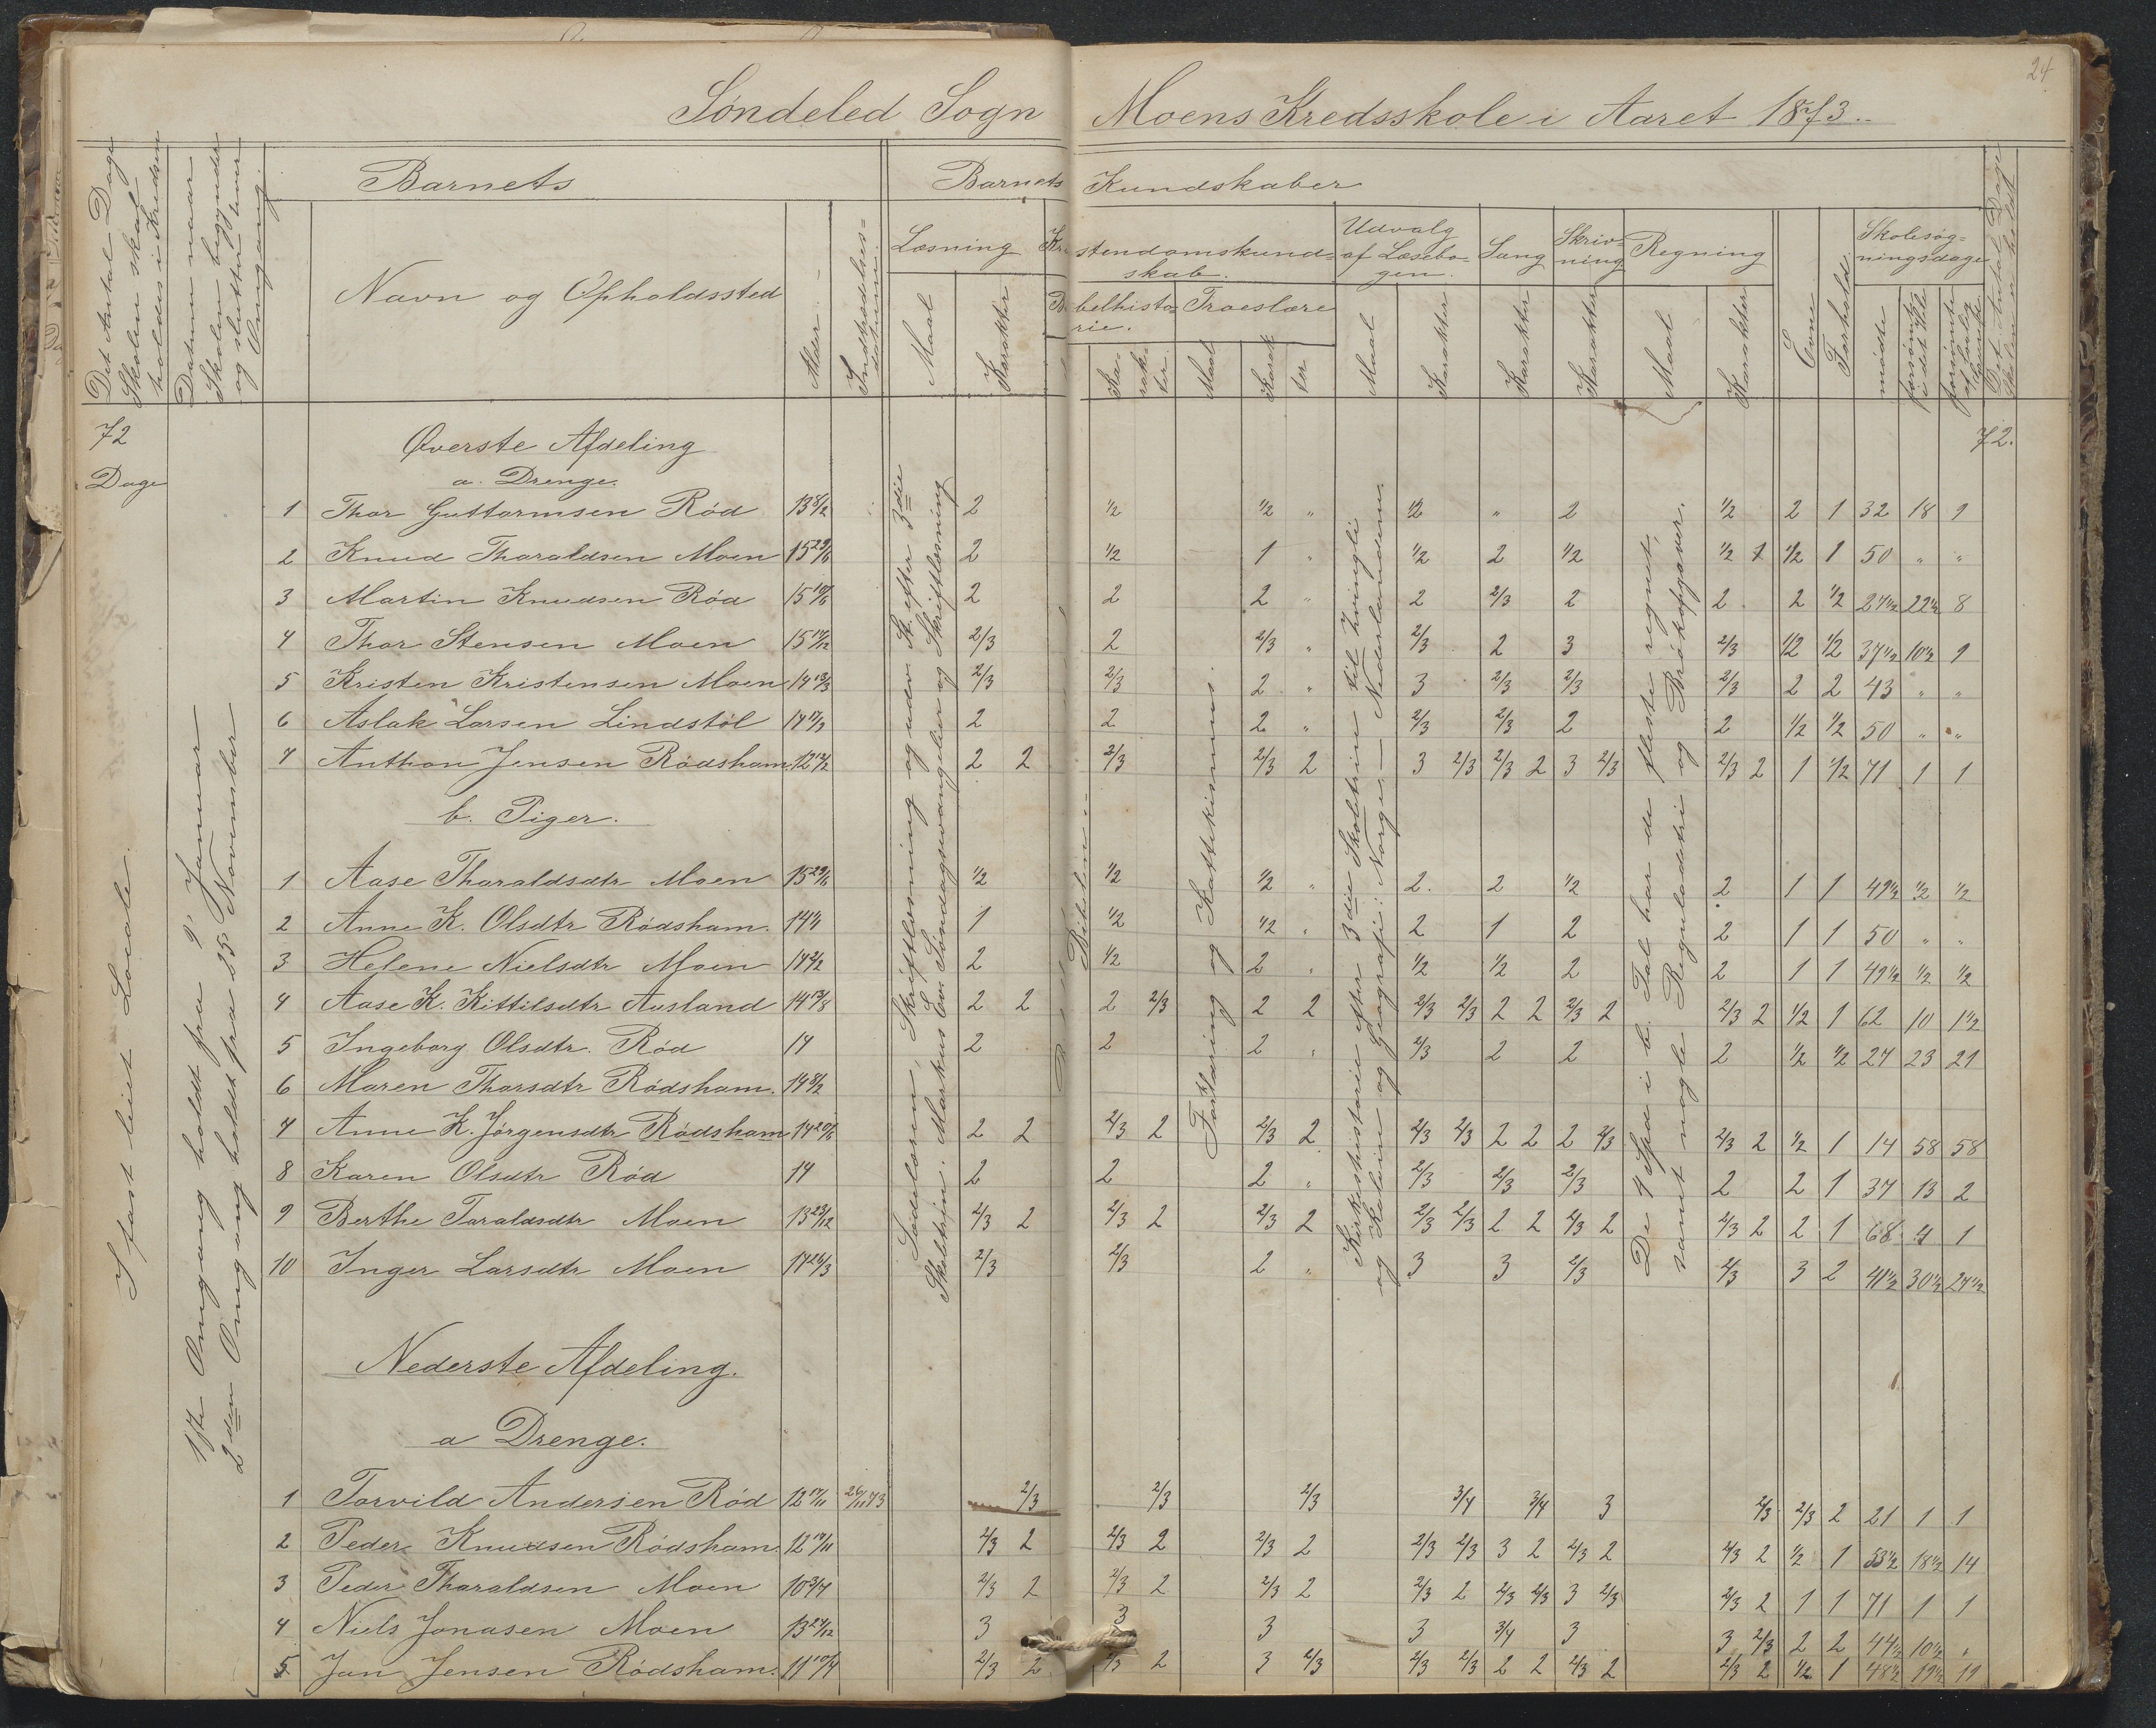 24
Søndeled Sogn Moens Kredsskole i Aaret 1873.
Det Antal Dage Skolen skal holdes i Kredsen
Datum naar Skolen begynder og slutter hver Omgang.
Barnets
Navn og Opholdssted
Alder
Indtrædelses-datum.
Barnets Kundskaber
Læsning
Maal
Karakter
Kristendomskund=skab.
Bibelhisto=rie.
Ka-rak-ter.
Troeslære
Maal
Karak ter
Udvalg af Læsebo-gen.
Maal
Karakter
Sang
Karakter
Skriv=ning
Karakter
Regning
Maal
Karakter
Evne
Forhold.
Skolesøg=ningsdage
mødte
forsømte i det Hele
forsømte af lovlig Grund
Det Antal Dage Skolen er holdt
72 Dage
72.
I fast leiet Locale.
1ste Omgang holdt fra 9 Januar
2den Omgang holdt fra 25 November
Øverste Afdeling
a. Drenge.
1 Thor Guttormsen Rød 13 8/2 2 1/2 1/2 " 1/2 " 2 1/2 2 1 32 18 9
2 Knud Tharaldsen Moen 15 29/6 2 1/2 1 " 1/2 2 1/2 1/2 1 1/2 1 50 " "
3 Martin Knudsen Rød 15 10/6 2 2 2 " 2 2/3 2 2 2 1/2 27 1/2 22 1/2 8
4 Thor Stensen Moen 15 14/12 2/3 2 2/3 " 2/3 2 3 2/3 1/2 1/2 37 1/2 10 1/2 9
5 Kristen Kristensen Moen 14 13/3 2/3 2/3 2 " 3 2/3 2/3 2/3 2 2 43 " "
6 Aslak Larsen Lindstøl 14 17/9 2 2 2 " 2/3 2/3 2 2 1/2 1/2 50 " "
7 Anthon Jensen Rødsham. 12 12/2 2 2 2/3 2/3 2 3 2/3 2/3 2 3 2/3 2/3 2 1 1/2 71 1 1
b. Piger.
1 Aase Tharaldsdtr Moen 15 29/6 1/2 1/2 1/2 " 2. 2 1/2 2 1 1 49 1/2 1/2 1/2
2 Anne K. Olsdtr Rødsham. 14 1 1/2 1/2 " 2 1 2 2 1 1 50 " "
3 Helene Nielsdtr Moen 14 2/2 2 1/2 2 " 1/2 1/2 2 2 1 1 49 1/2 1/2 1/2
4 Aase K. Kittilsdtr Ausland 14 13/8 2 2 2 2/3 2 2 2/3 2/3 2 2 2/3 2 2/3 2 1/2 1 62 10 1 1/2
5 Ingeborg Olsdtr. Rød 14 2 2 2 " 2/3 2 2 2 1/2 1/2 27 23 21
6 Maren Thorsdtr Rødsham. 14 8/2
7 Anne K. Jørgensdtr Rødsham 14 20/6 2 2 2/3 2 2/3 2 2/3 2/3 2 2 2 2/3 2/3 2 1/2 1 14 58 58
8 Karen Olsdtr Rød 14 2 2 2 " 2/3 2/3 2/3 2 2 1 37 13 2
9 Berthe Taraldsdtr Moen 13 23/12 2/3 2 2/3 2 2/3 2 2/3 2/3 2 2 2/3 2 2/3 2 2 1 68 4 1
10 Inger Larsdtr Moen 14 26/3 2/3 2/3 2 " 3 3 2/3 2/3 3 2 41 1/2 30 1/2 27 1/2
Skriftlæsning og udev. St. efter 3die Skoletrin. Markus Ev. Søndagsevangelier og Skriftlæsning
Bibelen.
Forklaring og Kattekismus.
Kirkehistorie efter 3die Skoletrin til Zwinglii
og Geografi: Norge, Nederlandene.
De 4 Spec. i b. Tal har de fleste regnet,
samt nogle Reguladetri og Brøkopgaver.
Nederste Afdeling.
a Drenge.
1 Torvild Andersen Rød 12 17/11 26/11 73 2/3 2/3 2/3 3/4 3/4 3 2/3 2/3 2 21 1 1
2 Peder Knudsen Rødsham. 12 17/11 2/3 2 2/3 2 2/3 2 2/3 2/3 3 2 2/3 2 2/3 2 1/2 1 53 1/2 18 1/2 14
3 Peder Tharaldsen Moen 10 3/7 2/3 2 2/3 2 2/3 2 2/3 2 2/3 2/3 3 2/3 2/3 2 1 1 71 1 1
4 Niels Jonasen Moen 13 27/12 3 3 3 3 3/4 3 3 2/3 2 2 44 1/2 10 1/2 "
5 Jan Jensen Rødsham. 11 10/4 2/3 2 2/3 2 3 2/3 2/3 2/3 2 2 2/3 2 2/3 2 1/2 1 48 1/2 19 1/2 19